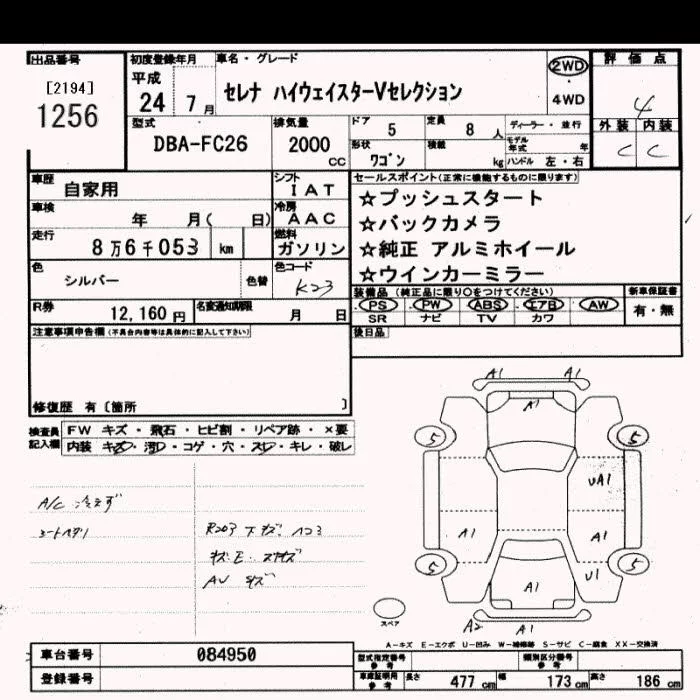 出品番号
[2194]
1256
初度登録年月
平成
24 7月
車名・グレード
セレナ ハイウェイスターVセレクション
2WD
・
4WD
評価点
4
外装 内装
C C
型式
DBA-FC26
排気量
2000
CC
ドア 5 定員 8 人
形状 ワゴン 積載 kg
ディーラー・並行
モデル年式 年
ハンドル 左・右
車歴 自家用
シフト IAT
車検 年 月( 日)
冷房 AAC
走行 8万6千053 km
燃料 ガソリン
色 シルバー 色替
色コード K23
R券 12,160円
名変通知期限 月 日
セールスポイント(正常に機能するものに限ります)
☆プッシュスタート
☆バックカメラ
☆純正 アルミホイール
☆ウインカーミラー
装備品 (純正品に限り○をつけてください)
PS PW ABS エアB AW
SR ナビ TV カワ
新車保証書
有・無
後日品
注意事項申告欄(不具合内容等は具体的に記入して下さい)
修復歴 有〔箇所 〕
検査員記入欄
FW キズ・飛石・ヒビ割・リペア跡・×要
内装 キズ・汚レ・コゲ・穴・スレ・キレ・破レ
A/C 冷えず
シートヘタリ
AV キズ
A1 A1
A1
5 5
UA1
A1 A1
5 5
U1
A1
A2 A1
スペア
A-キズ E-エクボ U-凹み W-補修跡 S-サビ C-腐食 XX-交換済
車台番号 084950
登録番号
型式指定番号 参考
類別区分番号 参考
車庫証明用 参考 長さ 477cm 幅 173cm 高さ 186cm